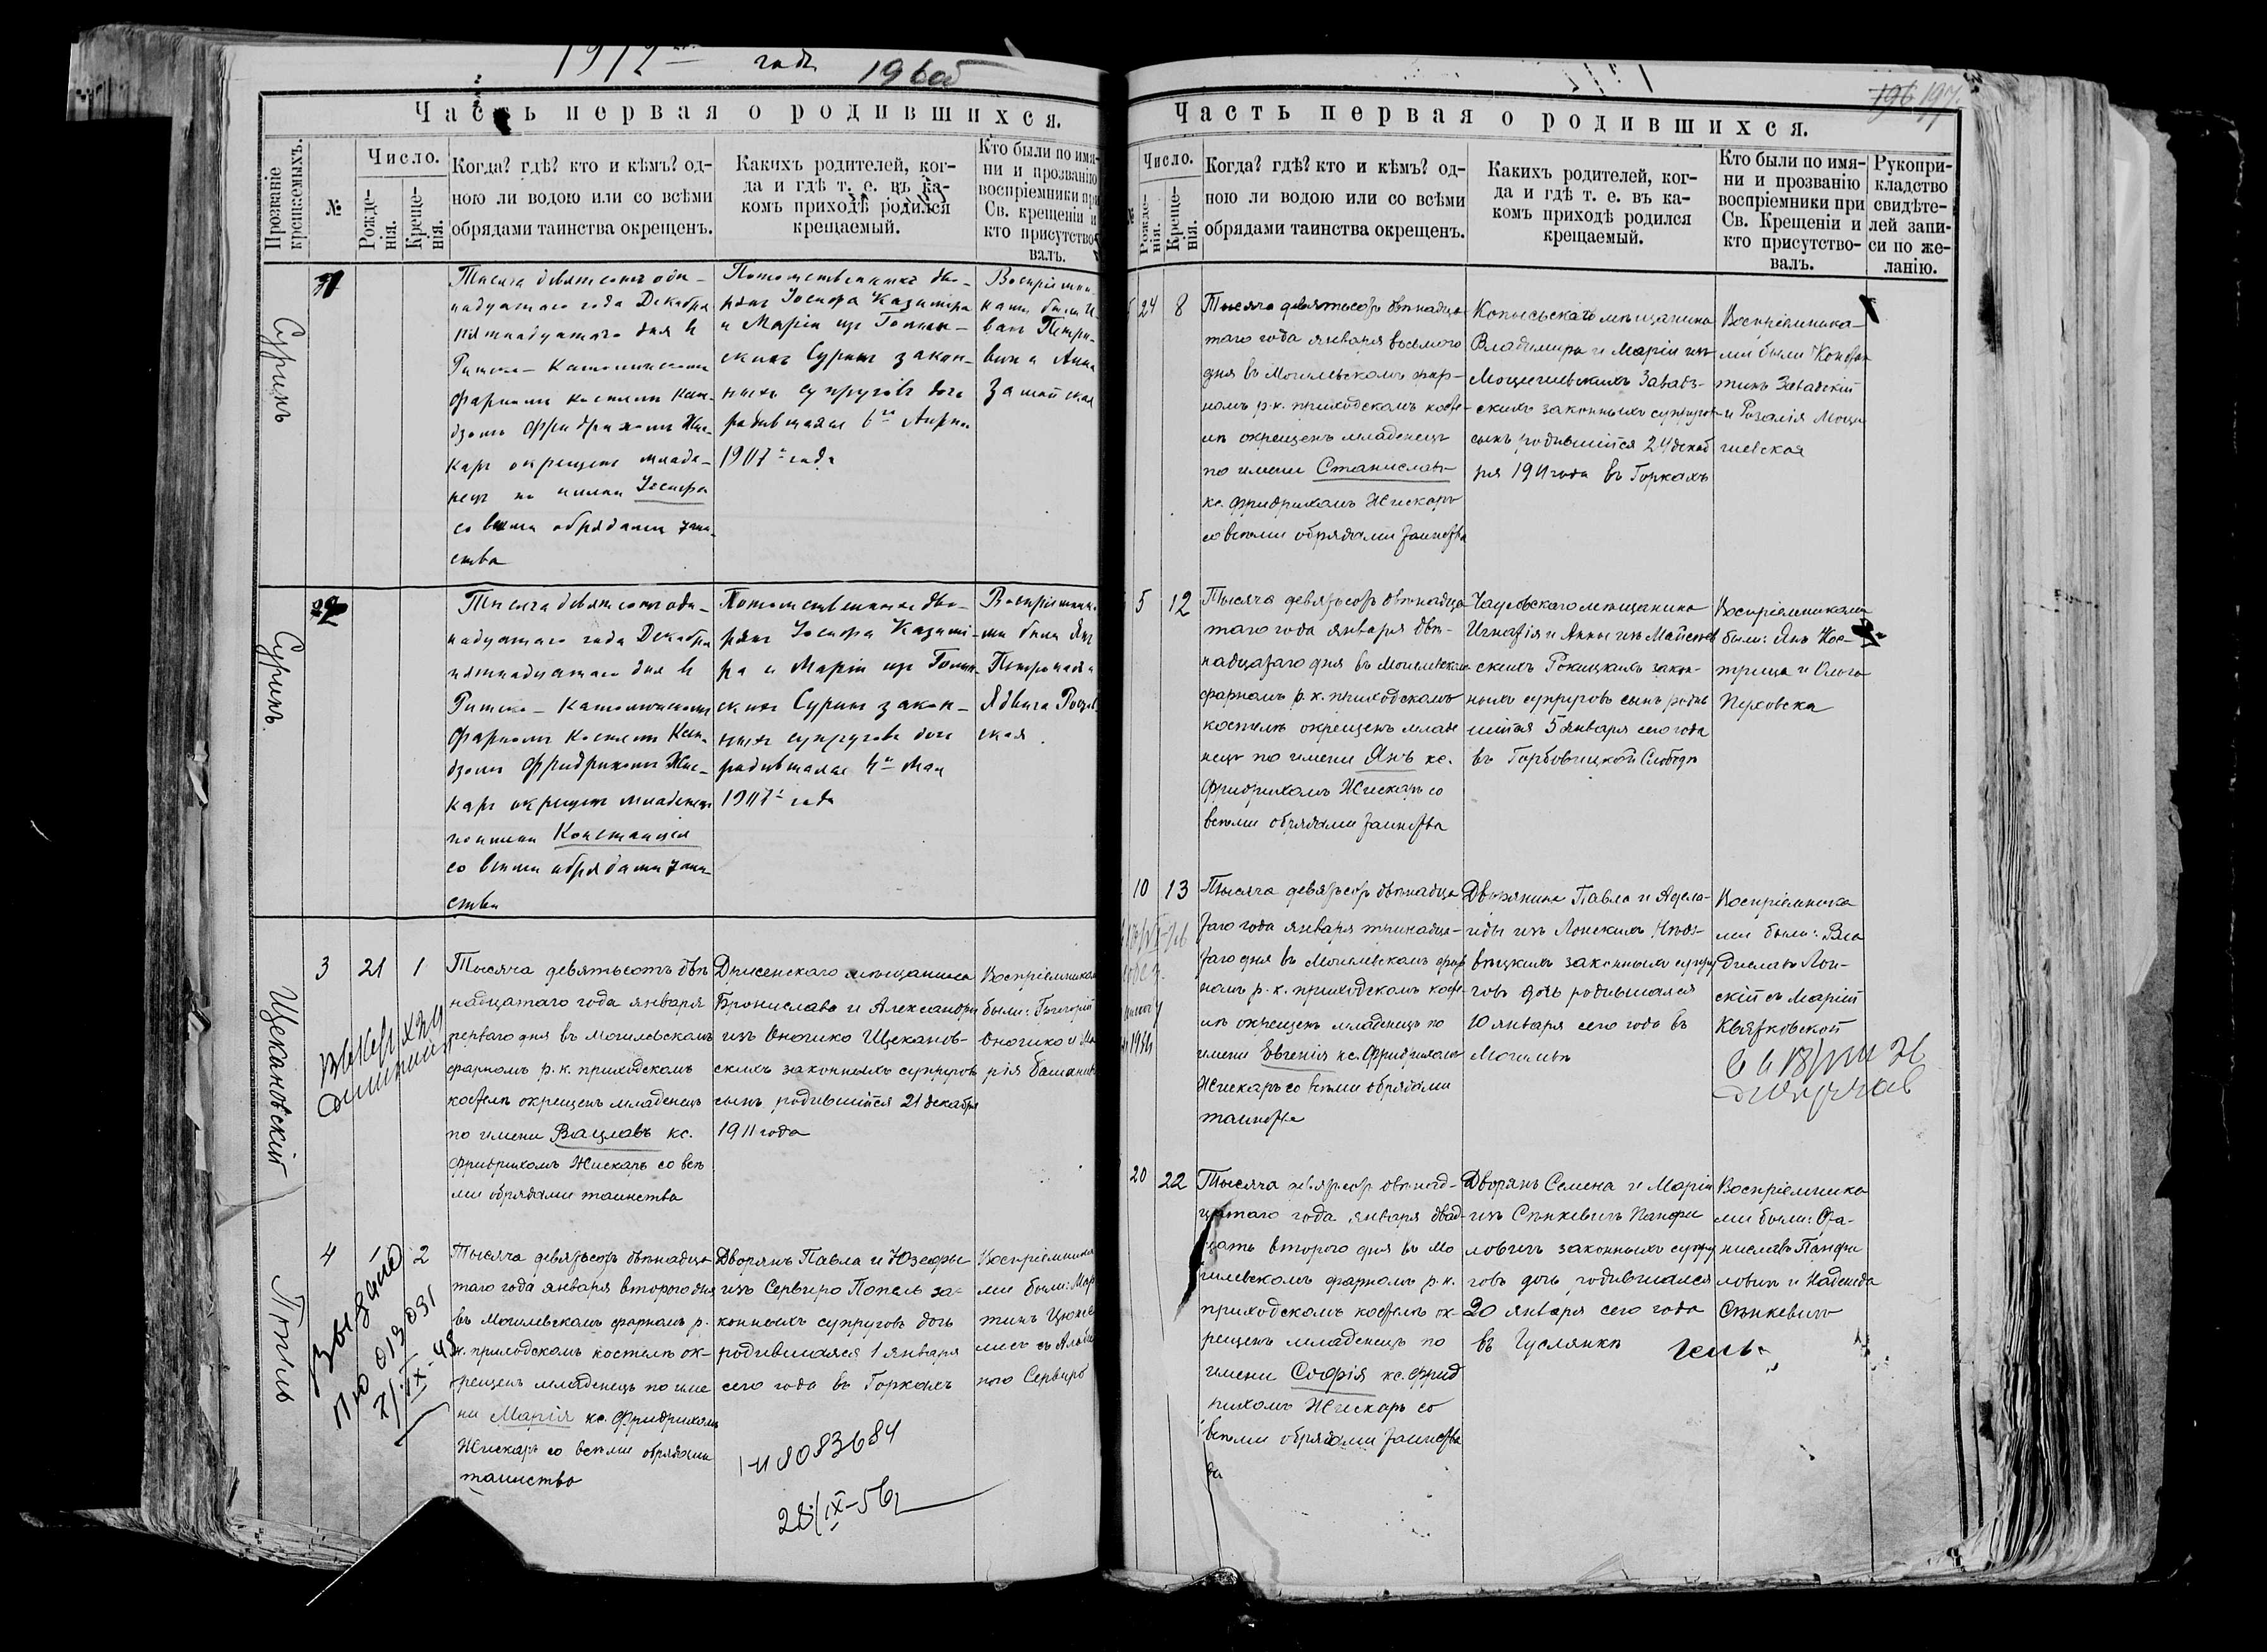 1912 года 196об
Часть первая о родившихся.
Прозваніе крещаемыхъ.
№
Число.
Рожде-
нія.
Креще-
нія.
Когда? гдѣ? кто и кѣмъ? од-
ною ли водою или со всѣми
обрядами таинства окрещенъ.
Какихъ родителей, ког-
да и гдѣ т. е. въ ка-
комъ приходѣ родился
крещаемый.
Кто были по имя-
ни и прозванію
воспріемники при
Св. крещеніи и
кто присутство-
валъ.
Суринъ
1
Тысяча девятьсотъ оди-
надцатаго года Декабря
пятнадцатаго дня в
Римско-Католическомъ
фарномъ костелѣ Ксен-
дзомъ Фридрихомъ Жис-
каръ окрещенъ младе-
нецъ по имени Іосифа
со всѣми обрядами таин-
ства
Потомственныхъ дво-
рянъ Іосифа Казиміра
и Маріи изъ
скихъ Суринъ закон-
ныхъ супруговъ дочь
родившаяся 6го
1907 года
Воспріемни-
ками были И-
ванъ Петро-
вичъ Анна
Суринъ.
2
Тысяча девятьсотъ оди-
надцатаго года Декабря
пятнадцатаго дня в
Римско-Католическомъ
фарномъ Костелѣ Ксен-
дзомъ Фридрихомъ Жис-
каръ окрещенъ младенецъ
по имени Констанція
со всѣми обрядами таин-
ства
Потомственныхъ дво-
рянъ Іосифа Казимі-
ра и Маріи изъ
скихъ Суринъ закон-
ныхъ супруговъ дочь
родившаяся 4го Мая
1907 года
Воспріемника-
ми были Янъ
Ядвига
ская.
Щекановскій
3 21 1
Тысяча девятьсотъ двѣ
надцатаго года января
перваго дня въ Могилевскомъ
фарномъ р.к. приходскомъ
костелѣ окрещенъ младенецъ
по имени Вацлавъ кс.
Фридрихомъ Жискаръ со всѣ
ми обрядами таинства
Дрисенскаго мѣщанина
Бронислава и Александры
изъ Оношко Щеканов-
скихъ законныхъ супруговъ
сынъ родившійся 21 декабря
1911 года
Воспріемниками
были: Григорій
Оношко и Ма
рія
Попель
4 2
Тысяча девятьсотъ двѣнадца
таго года января второго дня
въ Могилевскомъ фарномъ р.
к. приходскомъ костелѣ ок-
рещенъ младенецъ по име
ни Марія кс. Фридрихомъ
Жискаръ со всѣми обрядами
таинства
Дворянъ Павла и Юзефы
изъ Сервиро Попель за-
конныхъ супруговъ дочь
родившаяся 1 января
сего года въ Горкахъ
Воспріемника
ми были: Мар
тинъ
Сервиро
8083684
28/IX-56г
196 197.
Часть первая о родившихся.
Число.
Рожде-
нія.
Креще-
нія.
Когда? гдѣ? кто и кѣмъ? од-
ною ли водою или со всѣми
обрядами таинства окрещенъ.
Какихъ родителей, ког-
да и гдѣ т. е. въ ка-
комъ приходѣ родился
крещаемый.
Кто были по имя-
ни и прозванію
воспріемники при
Св. Крещеніи и
кто присутство-
валъ.
Рукопри-
кладство
свидѣте-
лей запи-
си по же-
ланію.
24 8
Тысяча девятьсотъ двѣнадца
таго года января восьмого
дня въ Могилевскомъ фар-
номъ р.к. приходскомъ косте-
лѣ окрещенъ младенецъ
по имени Станиславъ
кс. Фридрихомъ Жискаръ
со всѣми обрядами таинства
Копысьскаго мѣщанина
Владимира и Маріи изъ
Завадз-
скихъ законныхъ супруговъ
сынъ родившійся 24 декаб
ря 1911 года въ Горкахъ
Воспріемника-
ми были Констан
тинъ Завадскій
и Розалія Моще
шевская
5 12
Тысяча девятьсотъ двѣнадца
таго года января двѣ-
надцатаго дня въ Могилевскомъ
фарномъ р.к. приходскомъ
костелѣ окрещенъ младе
нецъ по имени Янъ кс.
Фридрихомъ Жискаръ со
всѣми обрядами таинства
Чаусовскаго мѣщанина
Игнатія и Анны изъ
скихъ Рокицкихъ закон-
ныхъ супруговъ сынъ родив
шійся 5 января сего года
въ Горбовицкой Слободѣ
Воспріемниками
были: Янъ Кос-
трица и Ольга
10 13
Тысяча девятьсотъ двѣнадца
таго года января тринадца-
таго дня въ Могилевскомъ фар
номъ р.к. приходскомъ косте-
лѣ окрещенъ младенецъ по
имени Евгенія кс. Фридрихомъ
Жискаръ со всѣми обрядами
таинства
Дворянина Павла и Адела-
иды изъ Лонскихъ
законныхъ супру
говъ дочь родившаяся
10 января сего года въ
Могилевѣ
Воспріемника
ми были: Вла
диславъ Лон-
скій съ Маріей
Квятковской
20 22
Тысяча девятьсотъ двѣнад-
цатаго года января двад-
цать второго дня въ Мо
гилевскомъ фарномъ р.к.
приходскомъ костелѣ ок-
рещенъ младенецъ по
имени Софія кс. Фрид
рихомъ Жискаръ со
всѣми обрядами таинства
Дворянъ Семена и Маріи
изъ Сѣнкевичъ Панфи
ловичъ законныхъ супру
говъ дочь родившаяся
20 января сего года
въ Гуслянкѣ
Воспріемника
ми были: Ста-
ниславъ Панфи
ловичъ и Надежда
Сѣнкевичъ